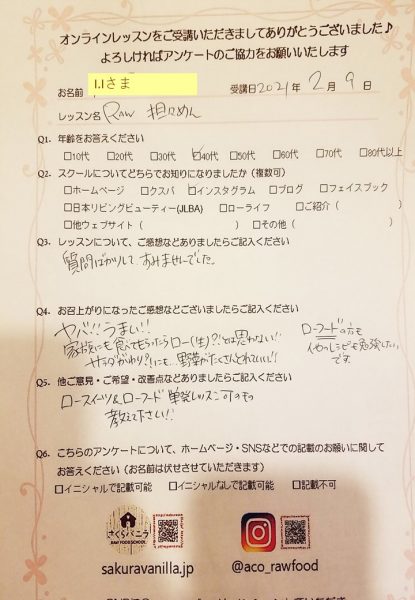 オンラインレッスンをご受講いただきましてありがとうございました♪
よろしければアンケートのご協力をお願いいたします
お名前 I.Iさま 受講日2021年 2月 9日
レッスン名 Raw 担々めん
Q1. 年齢をお答えください
□10代 □20代 □30代 ☑40代 □50代 □60代 □70代 □80代以上
Q2. スクールについてどちらでお知りになりましたか（複数可）
□ホームページ □クスパ ☑インスタグラム □ブログ □フェイスブック
□日本リビングビューティー(JLBA) □ローライフ □ご紹介（ ）
□他ウェブサイト（ ） □その他（ ）
Q3. レッスンについて、ご感想などありましたらご記入ください
質問ばかりして、すみませんでした。
Q4. お召上がりになったご感想などございましたらご記入ください
ヤバ!!うまい!!
家族にも食べてもらったらロー(生)?!とは思わない!!
サラダがわり?!にも…野菜がたくさんとれていい!!
ローフードの方も
他のレシピも勉強したい
です。
Q5. 他ご意見・ご希望・改善点などありましたらご記入ください
ロースイーツ&ローフード 単発レッスン可のもの
教えて下さい!!
Q6. こちらのアンケートについて、ホームページ・SNSなどでの記載のお願いに関して
お答えください（お名前は伏せさせていただきます）
□イニシャルで記載可能 □イニシャルなしで記載可能 □記載不可
さくらバニラ
RAW FOOD SCHOOL
sakuravanilla.jp @aco_rawfood